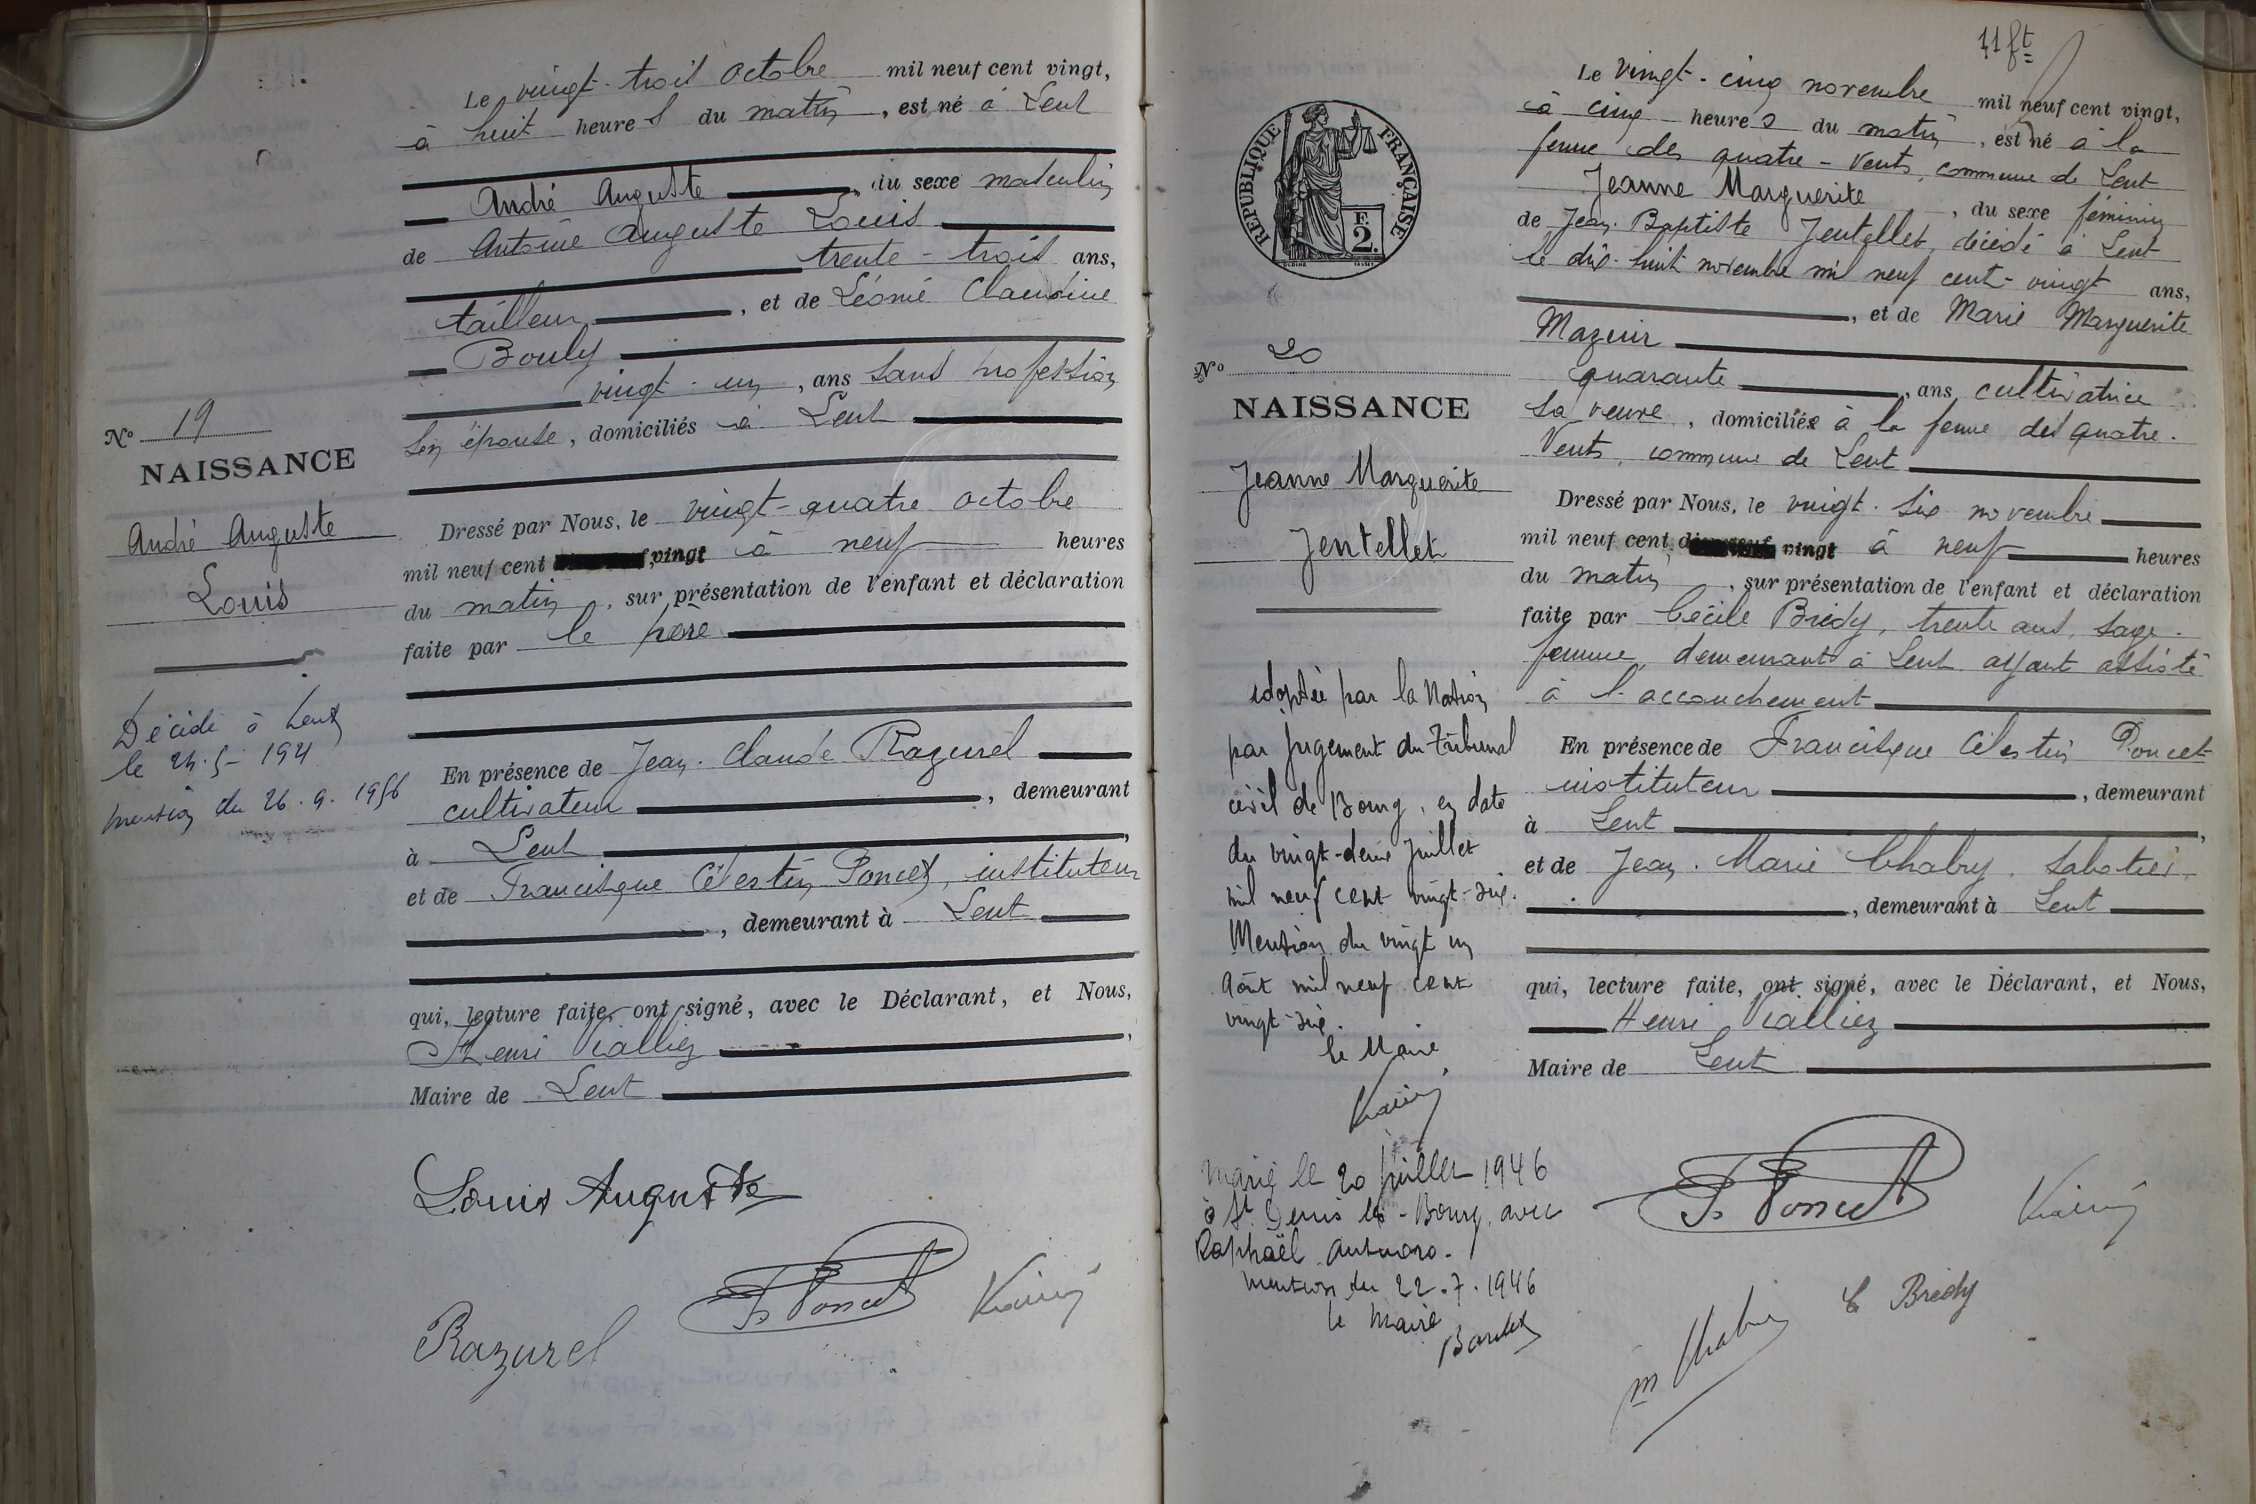 Le vingt-trois octobre mil neuf cent vingt,
à huit heures du matin, est né à Lent
André Auguste, du sexe masculin
de Antoine Auguste Louis
trente-trois ans,
tailleur, et de Léonie Claudine
Bouly
vingt-un, ans sans profession
son épouse, domiciliés à Lent
Dressé par Nous, le vingt-quatre octobre
mil neuf cent vingt à neuf heures
du matin, sur présentation de l'enfant et déclaration
faite par le père
En présence de Jean-Claude Razurel
cultivateur, demeurant
à Lent,
et de Francisque Célestin Poncet, instituteur
, demeurant à Lent
qui, lecture faite, ont signé, avec le Déclarant, et Nous,
Henri Vialliez,
Maire de Lent
Louis Auguste
Razurel
F. Poncet
No 19
NAISSANCE
André Auguste
Louis
Décédé à Lent
le 24-5-194
mention du 26.9.1956
11 ft
Le vingt-cinq novembre mil neuf cent vingt,
à cinq heures du matin, est né à la
ferme des quatre-vents, commune de Lent
Jeanne Marguerite, du sexe féminin
de Jean-Baptiste Jentellet, décédé à Lent
le dix-huit novembre mil neuf cent-vingt ans,
, et de Marie Marguerite
Mazuir
quarante, ans, cultivatrice
sa veuve, domiciliée à la ferme des quatre-
Vents, commune de Lent
Dressé par Nous, le vingt-six novembre
mil neuf cent vingt à neuf heures
du matin, sur présentation de l'enfant et déclaration
faite par Cécile Brédy, trente ans, sage-
femme, demeurant à Lent ayant assisté
à l'accouchement
En présence de Francisque Célestin Poncet
instituteur, demeurant
à Lent,
et de Jean-Marie Chabry, sabotier,
, demeurant à Lent
qui, lecture faite, ont signé, avec le Déclarant, et Nous,
Henri Vialliez
Maire de Lent
F. Poncet
C Brédy
RÉPUBLIQUE FRANÇAISE
F.
2.
No 20
NAISSANCE
Jeanne Marguerite
Jentellet
adoptée par la Nation
par jugement du Tribunal
civil de Bourg, en date
du vingt-deux Juillet
mil neuf cent vingt-six.
Mention du vingt un
Août mil neuf cent
vingt-six.
Le Maire
Marié le 20 juillet 1946
à St Denis lès-Bourg avec
Raphaël
mention du 22.7.1946
le Maire